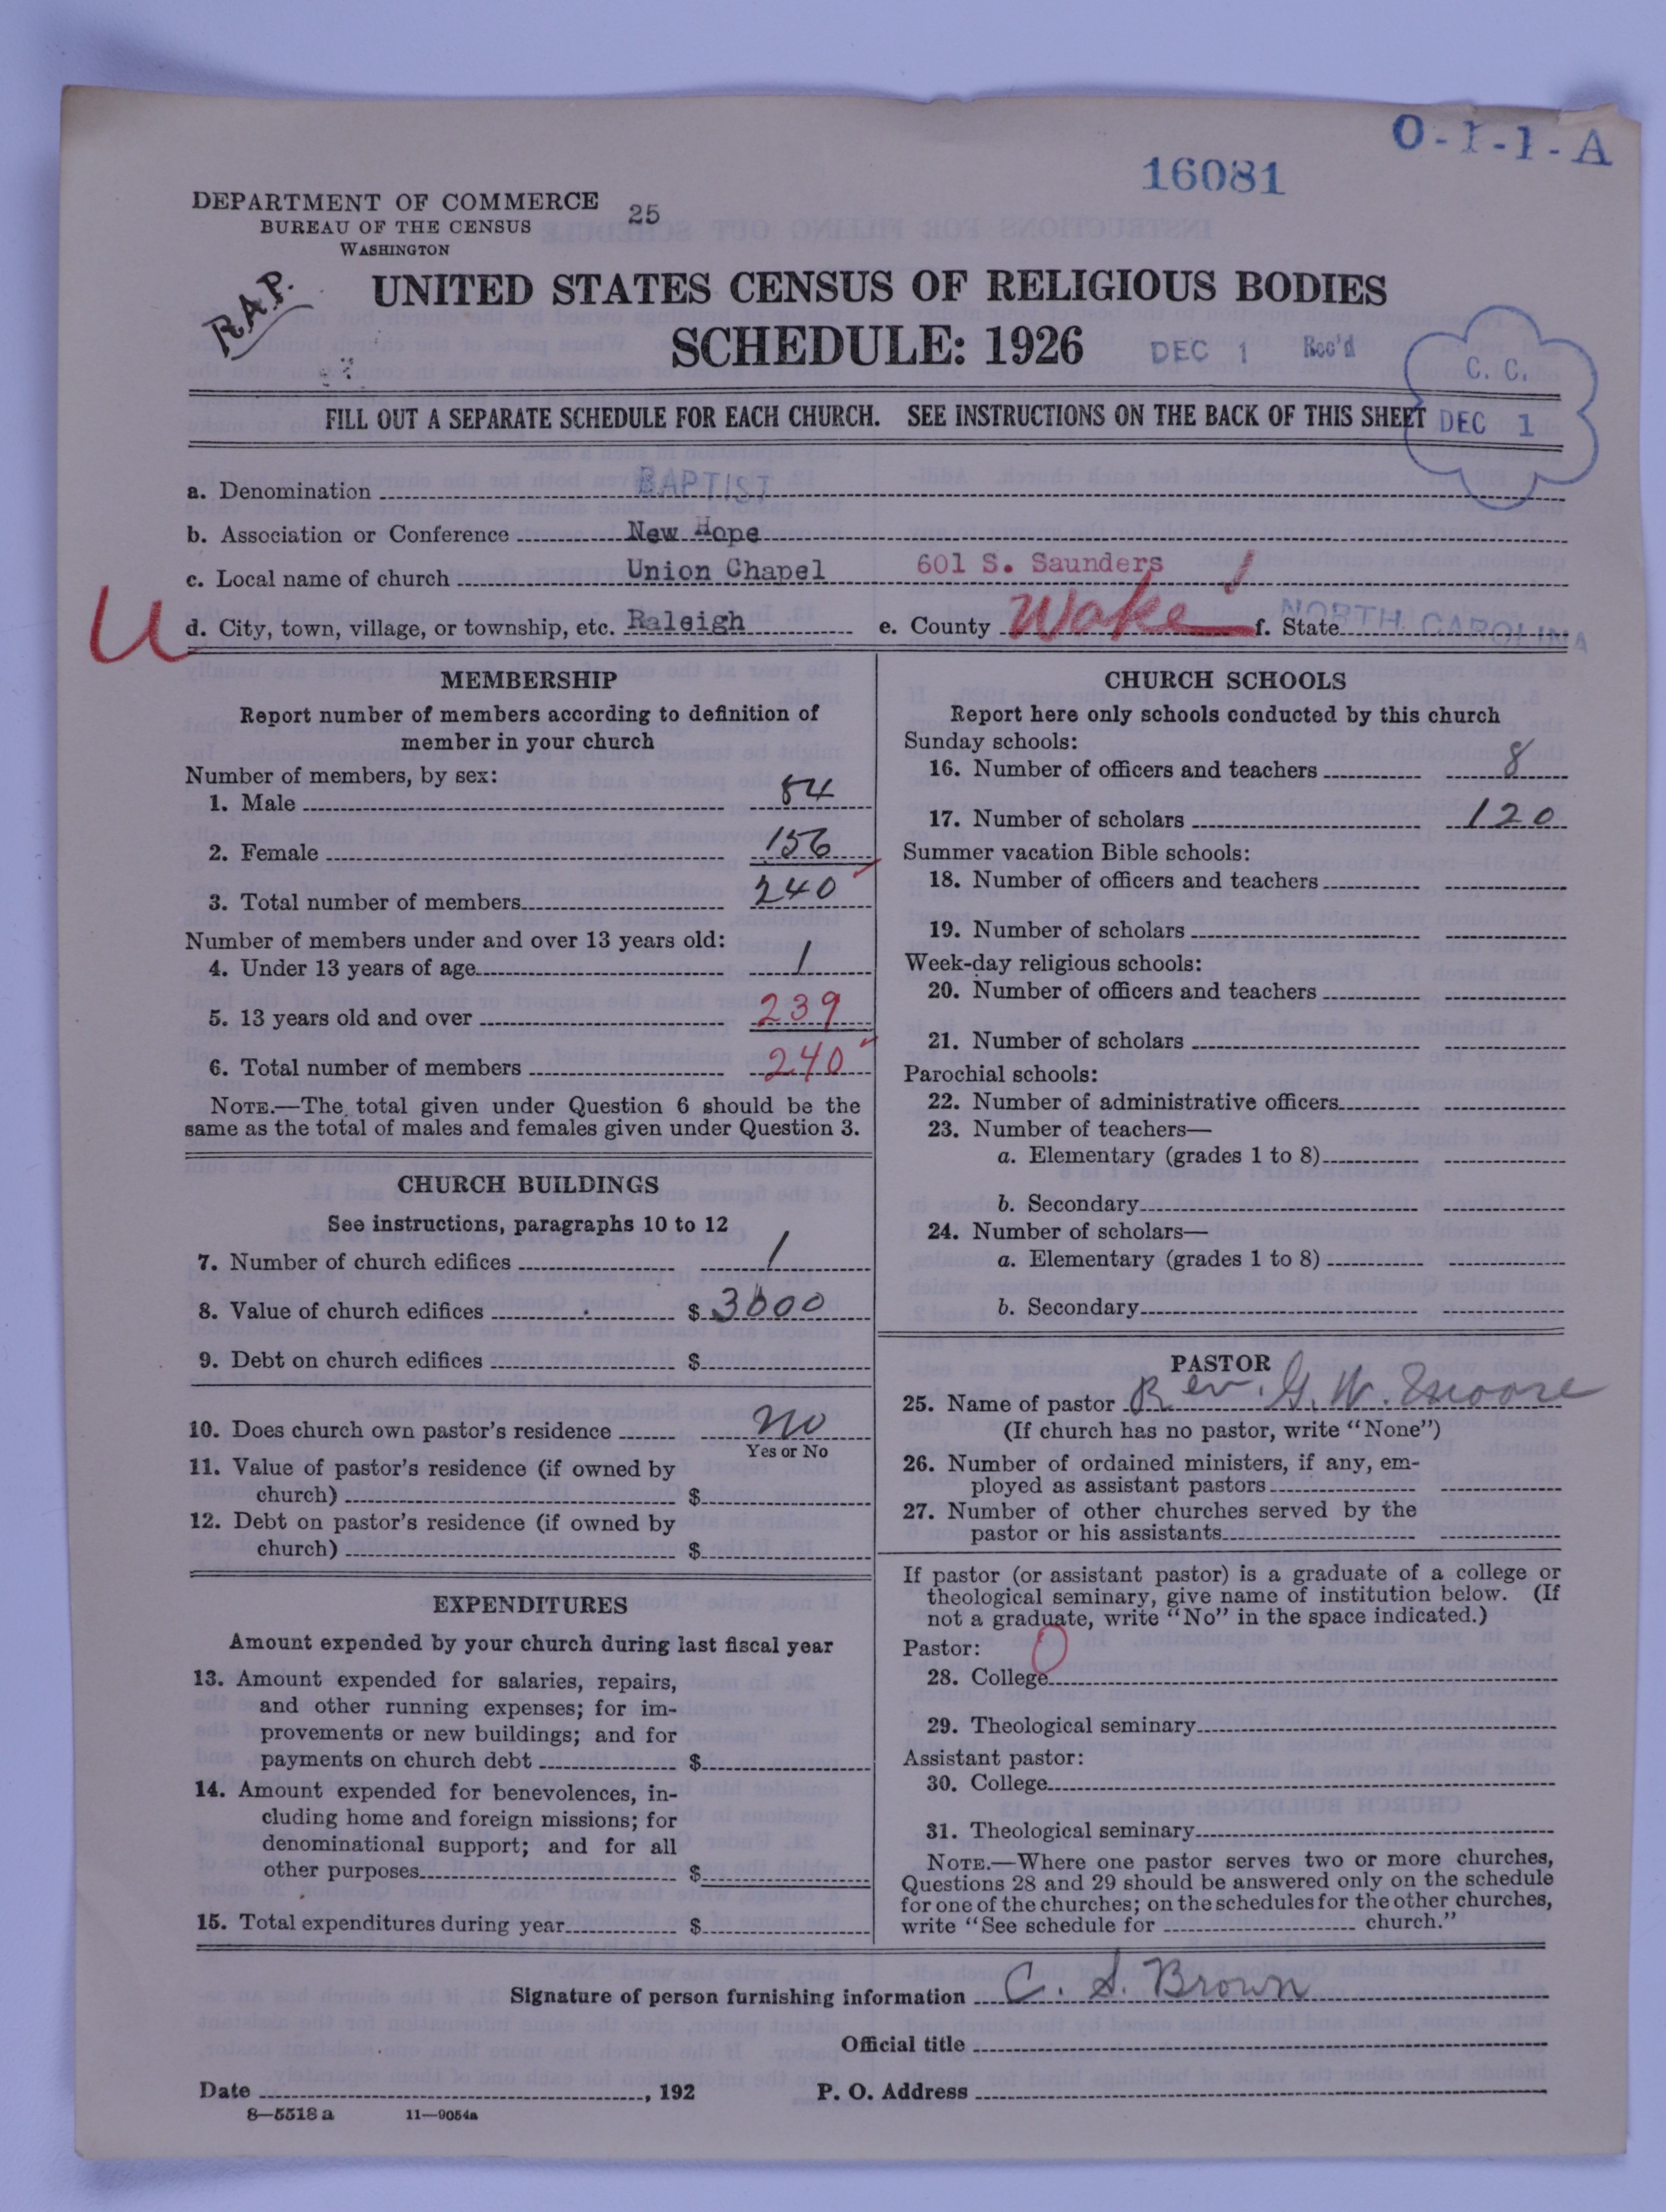 O-1-1-A
16081
DEPARTMENT OF COMMERCE
BUREAU OF THE CENSUS
WASHINGTON
25
R.A.P.
UNITED STATES CENSUS OF RELIGIOUS BODIES
SCHEDULE: 1926
DEC 1 Rec'd
C. C.
DEC 1
FILL OUT A SEPARATE SCHEDULE FOR EACH CHURCH. SEE INSTRUCTIONS ON THE BACK OF THIS SHEET
a. Denomination BAPTIST
b. Association or Conference New Hope
c. Local name of church Union Chapel 601 S. Saunders
U
d. City, town, village, or township, etc. Raleigh e. County Wake f. State NORTH CAROLINA
MEMBERSHIP
Report number of members according to definition of
member in your church
Number of members, by sex:
1. Male 84
2. Female 156
3. Total number of members 240
Number of members under and over 13 years old:
4. Under 13 years of age 1
5. 13 years old and over 239
6. Total number of members 240
NOTE.—The total given under Question 6 should be the
same as the total of males and females given under Question 3.
CHURCH BUILDINGS
See instructions, paragraphs 10 to 12
7. Number of church edifices 1
8. Value of church edifices $ 3000
9. Debt on church edifices $
10. Does church own pastor's residence No
Yes or No
11. Value of pastor's residence (if owned by
church) $
12. Debt on pastor's residence (if owned by
church) $
EXPENDITURES
Amount expended by your church during last fiscal year
13. Amount expended for salaries, repairs,
and other running expenses; for im-
provements or new buildings; and for
payments on church debt $
14. Amount expended for benevolences, in-
cluding home and foreign missions; for
denominational support; and for all
other purposes $
15. Total expenditures during year $
CHURCH SCHOOLS
Report here only schools conducted by this church
Sunday schools:
16. Number of officers and teachers 8
17. Number of scholars 120
Summer vacation Bible schools:
18. Number of officers and teachers
19. Number of scholars
Week-day religious schools:
20. Number of officers and teachers
21. Number of scholars
Parochial schools:
22. Number of administrative officers
23. Number of teachers—
a. Elementary (grades 1 to 8)
b. Secondary
24. Number of scholars—
a. Elementary (grades 1 to 8)
b. Secondary
PASTOR
25. Name of pastor Rev. G. W. Moore
(If church has no pastor, write "None")
26. Number of ordained ministers, if any, em-
ployed as assistant pastors
27. Number of other churches served by the
pastor or his assistants
If pastor (or assistant pastor) is a graduate of a college or
theological seminary, give name of institution below. (If
not a graduate, write "No" in the space indicated.)
Pastor: 0
28. College
29. Theological seminary
Assistant pastor:
30. College
31. Theological seminary
NOTE.—Where one pastor serves two or more churches,
Questions 28 and 29 should be answered only on the schedule
for one of the churches; on the schedules for the other churches,
write "See schedule for church."
Signature of person furnishing information C. S. Brown
Official title
Date , 192 P. O. Address
8—5518 a 11—9054a